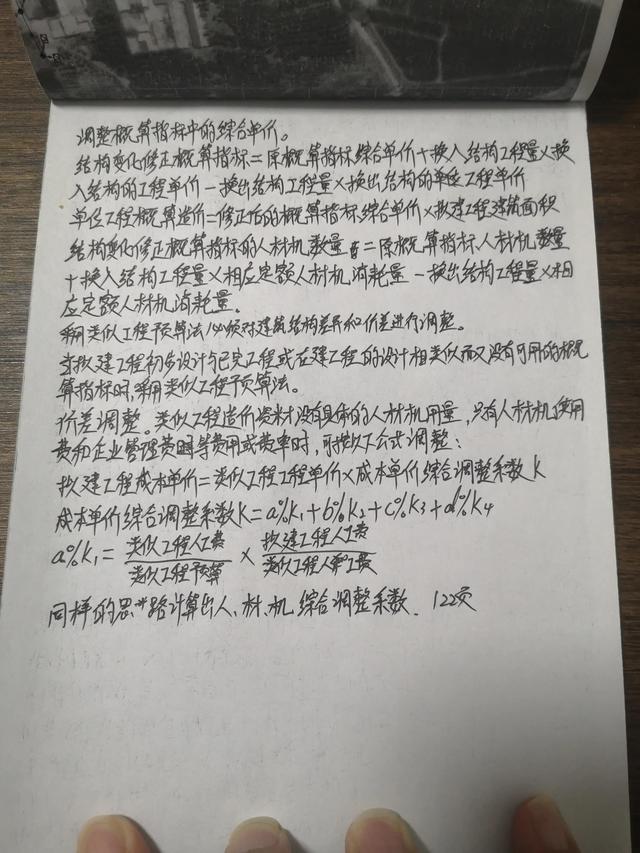 调整概算指标中的综合单价。
结构变化修正概算指标=原概算指标综合单价+换入结构工程量×换
入结构的工程单价-换出结构工程量×换出结构的单位工程单价
单位工程概算造价=修正后的概算指标综合单价×拟建工程建筑面积
结构变化修正概算指标的人材机数量=原概算指标人材机数量
+换入结构工程量×相应定额人材机消耗量-换出结构工程量×相
应定额人材机消耗量.
采用类似工程预算法必须对建筑结构差异和价差进行调整。
当拟建工程初步设计与已完工程或在建工程的设计相类似而又没有可用的概
算指标时,采用类似工程预算法。
价差调整。类似工程造价资料没有具体的人材机用量,只有人材机使用
费和企业管理费等费用或费率时,可按以下公式调整:
拟建工程成本单价=类似工程工程单价×成本单价综合调整系数K
成本单价综合调整系数K=a%K1+b%K2+c%K3+d%K4
a%K1=类似工程人工费/类似工程预算×拟建工程人工费/类似工程人工费
同样的思路计算出人、材、机综合调整系数. 122页